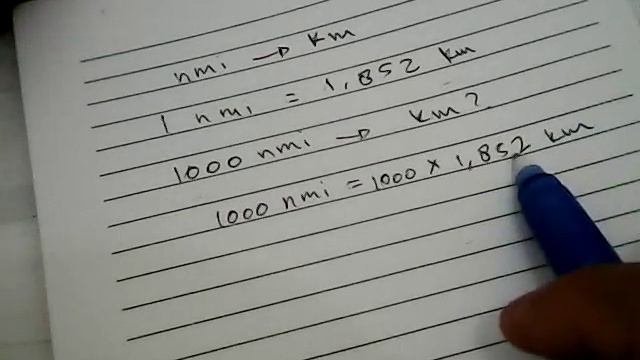 nmi → km
1 nmi = 1,852 km
1000 nmi → km?
1000 nmi = 1000 × 1,852 km